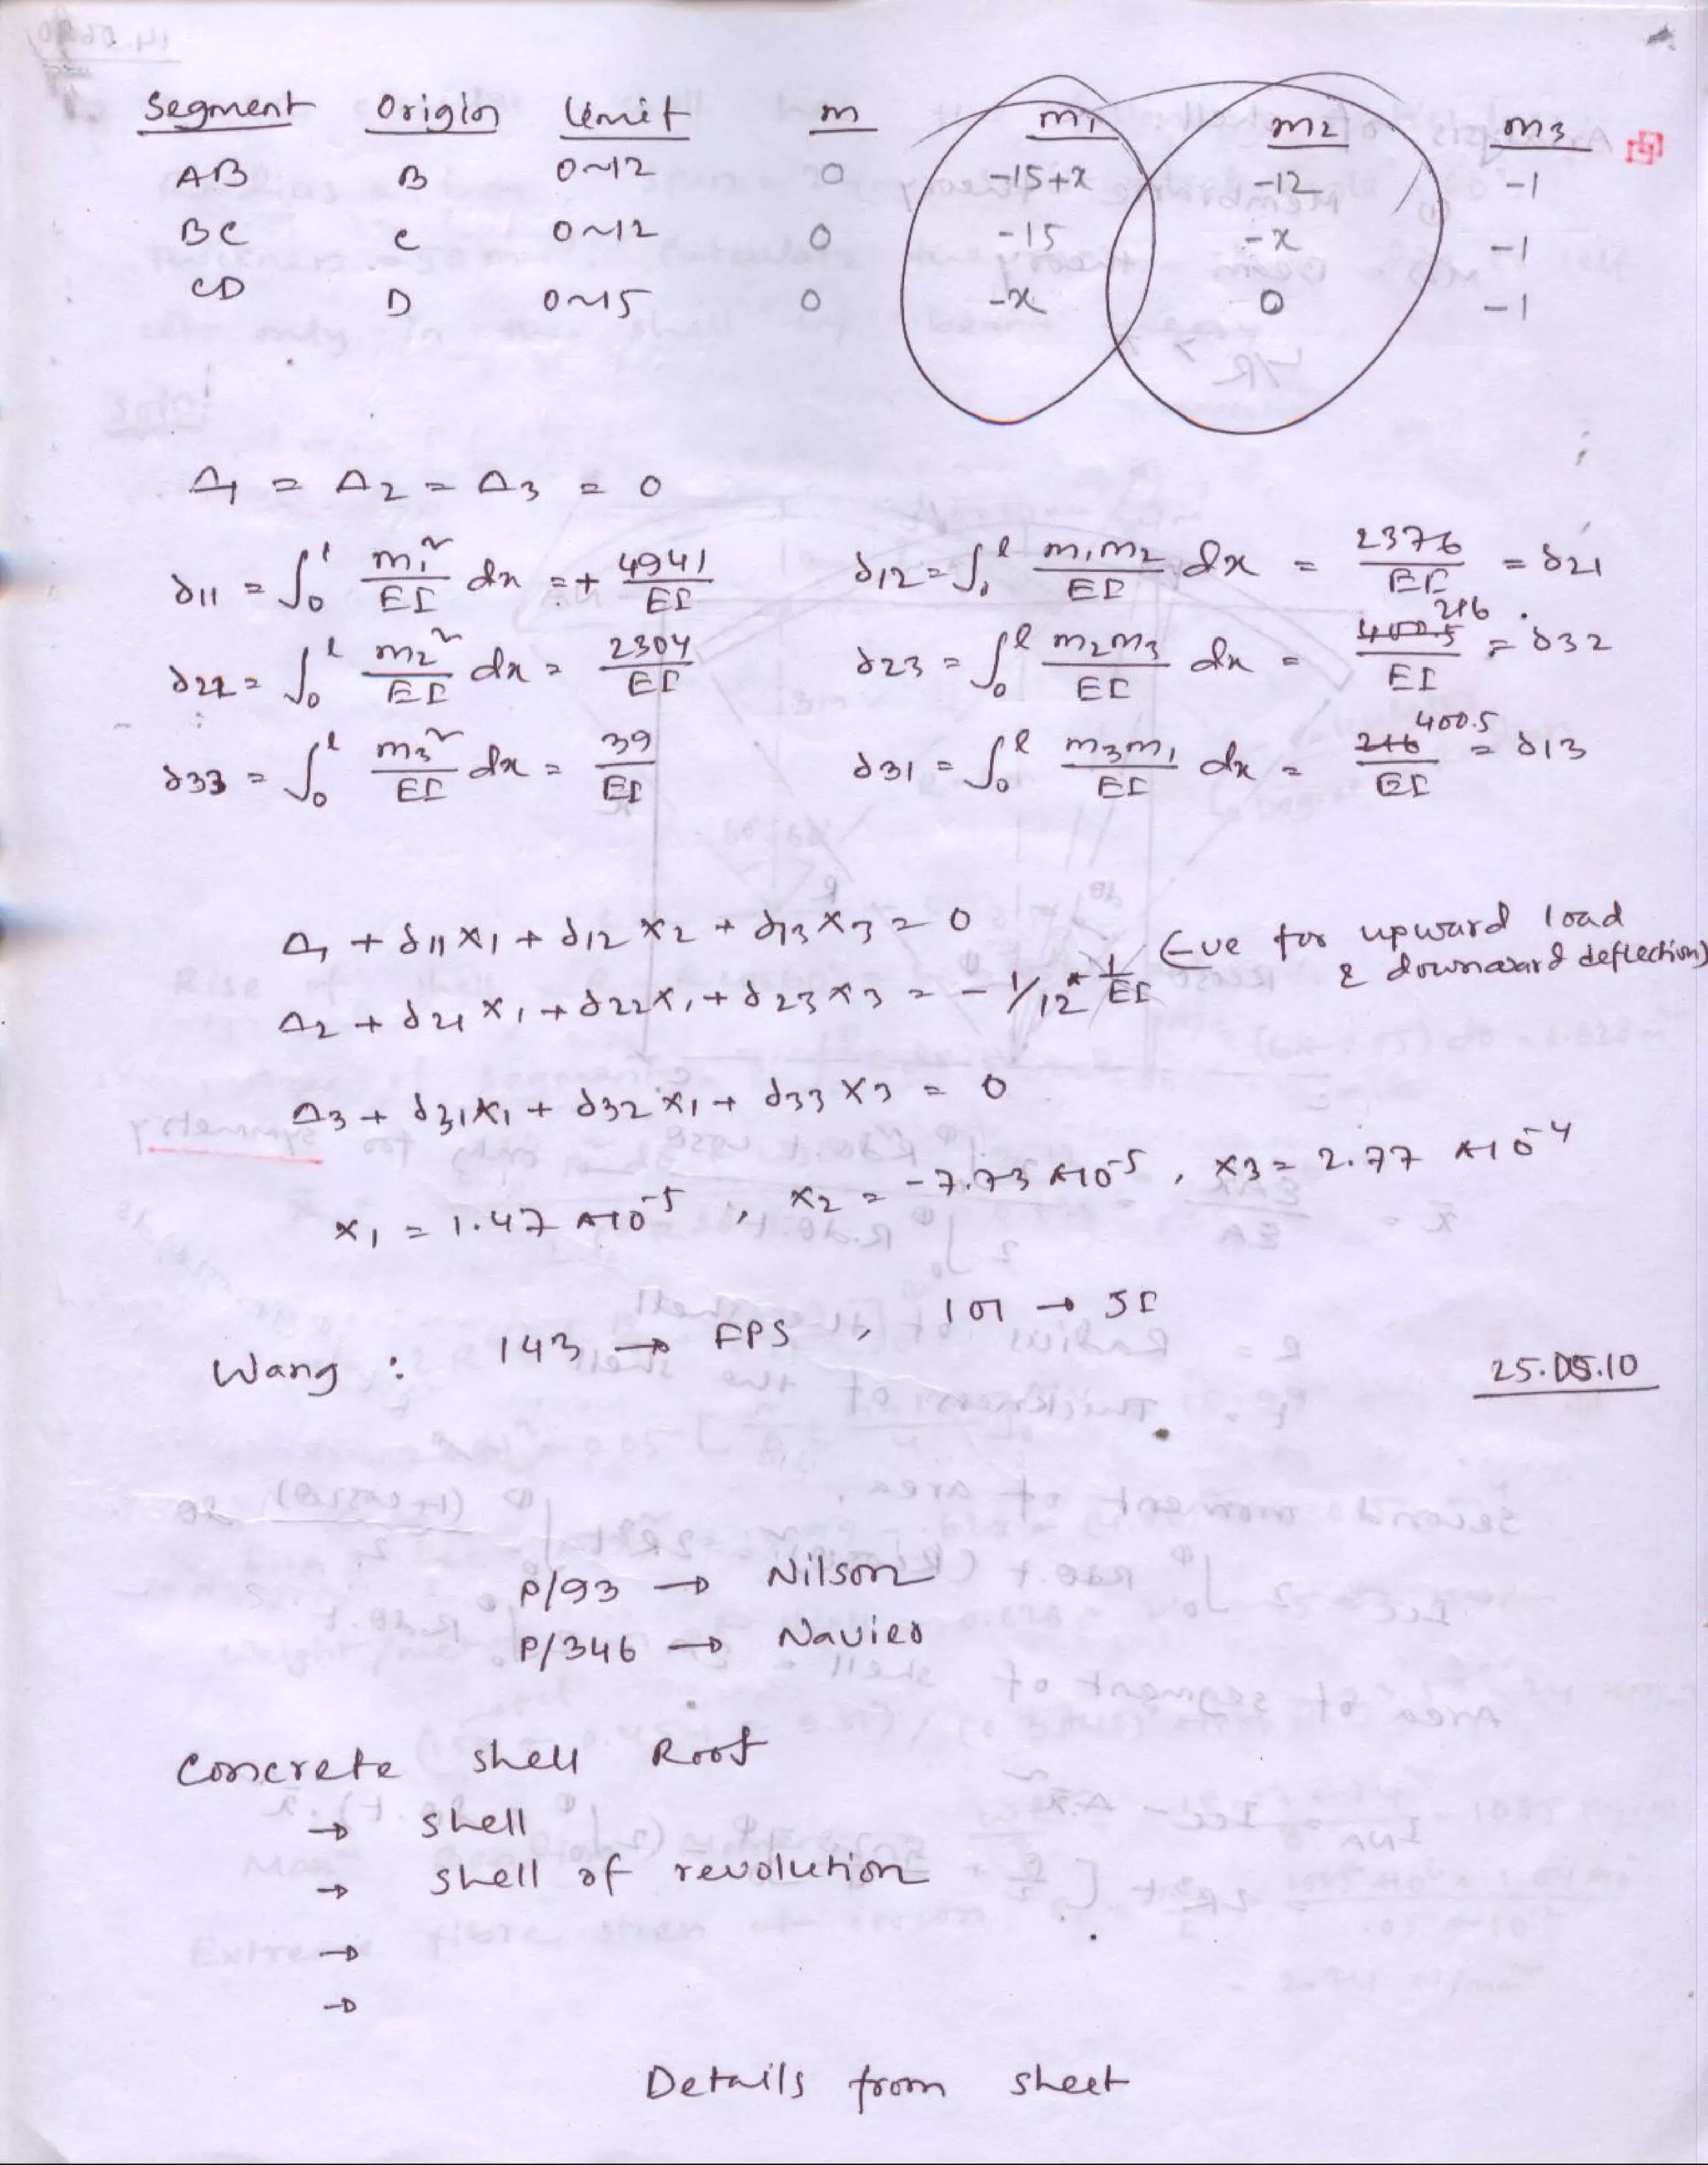 Segment Origin Limit m m₁ m₂ m₃
AB B 0~12 0 -15+x -12 -1
BC C 0~12 0 -15 -x -1
CD D 0~15 0 -x 0 -1
Δ₁ = Δ₂ = Δ₃ = 0
δ11 = ∫₀ˡ m₁²/EI dx = + 4941/EI δ12 = ∫₀ˡ m₁m₂/EI dx = 2376/EI = δ21
δ22 = ∫₀ˡ m₂²/EI dx = 2304/EI δ23 = ∫₀ˡ m₂m₃/EI dx = 216/EI = δ32
δ33 = ∫₀ˡ m₃²/EI dx = 39/EI δ31 = ∫₀ˡ m₃m₁/EI dx = 400.5/EI = δ13
Δ₁ + δ11 x₁ + δ12 x₂ + δ13 x₃ = 0 (-ve for upward load
Δ₂ + δ21 x₁ + δ22 x₁ + δ23 x₃ = - 1/12 * 1/EI & downward deflection)
Δ3 + δ31 x₁ + δ32 x₁ + δ33 x₃ = 0
x₁ = 1.47 × 10⁻⁵ , x₂ = -7.73 × 10⁻⁵ , x₃ = 2.77 × 10⁻⁴
Wang : 143 → FPS , 101 → SI
25.05.10
P/93 → Nilson
P/346 → Navier
Concrete shell Roof
→ shell
→ shell of revolution
→
→
Details from sheet